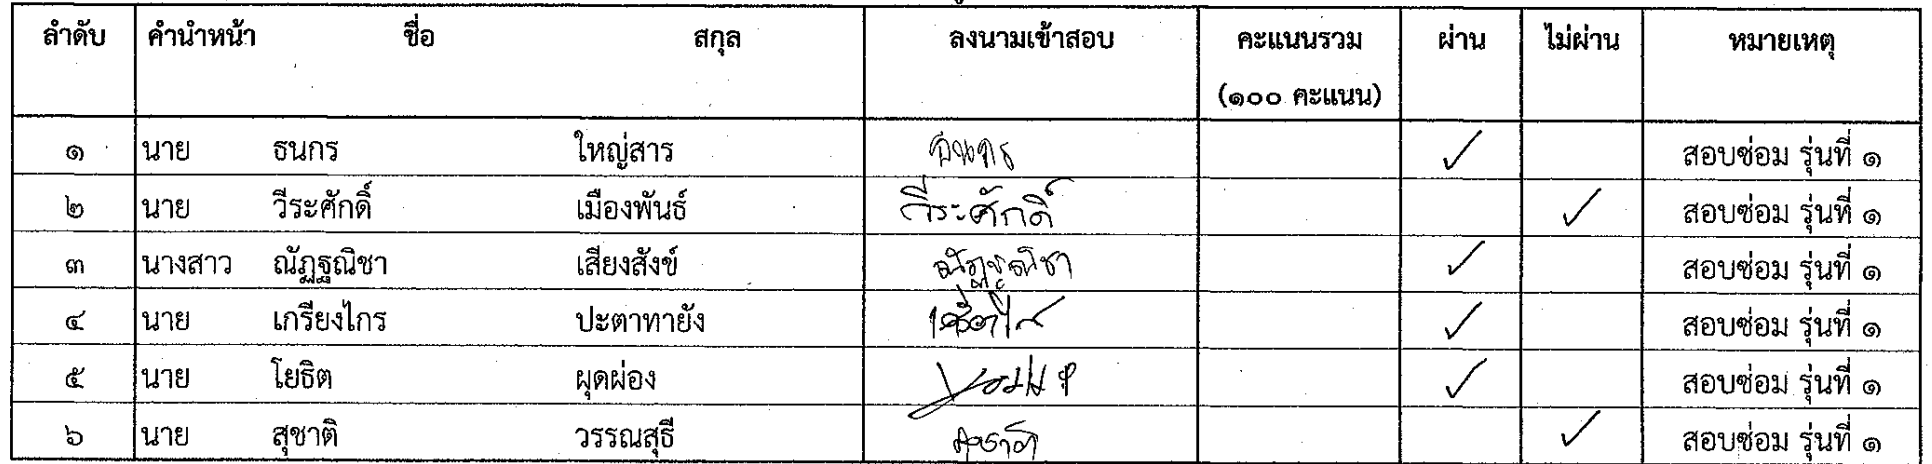 ลำดับ คำนำหน้า ชื่อ สกุล ลงนามเข้าสอบ คะแนนรวม ผ่าน ไม่ผ่าน หมายเหตุ
(๑๐๐ คะแนน)
๑ นาย ธนกร ใหญ่สาร ธนกร ✓ สอบซ่อม รุ่นที่ ๑
๒ นาย วีระศักดิ์ เมืองพันธ์ วีระศักดิ์ ✓ สอบซ่อม รุ่นที่ ๑
๓ นางสาว ณัฏฐณิชา เสียงสังข์ ณัฏฐณิชา ✓ สอบซ่อม รุ่นที่ ๑
๔ นาย เกรียงไกร ปะตาทายัง ✓ สอบซ่อม รุ่นที่ ๑
๕ นาย โยธิต ผุดผ่อง ✓ สอบซ่อม รุ่นที่ ๑
๖ นาย สุชาติ วรรณสุธี สุชาติ ✓ สอบซ่อม รุ่นที่ ๑